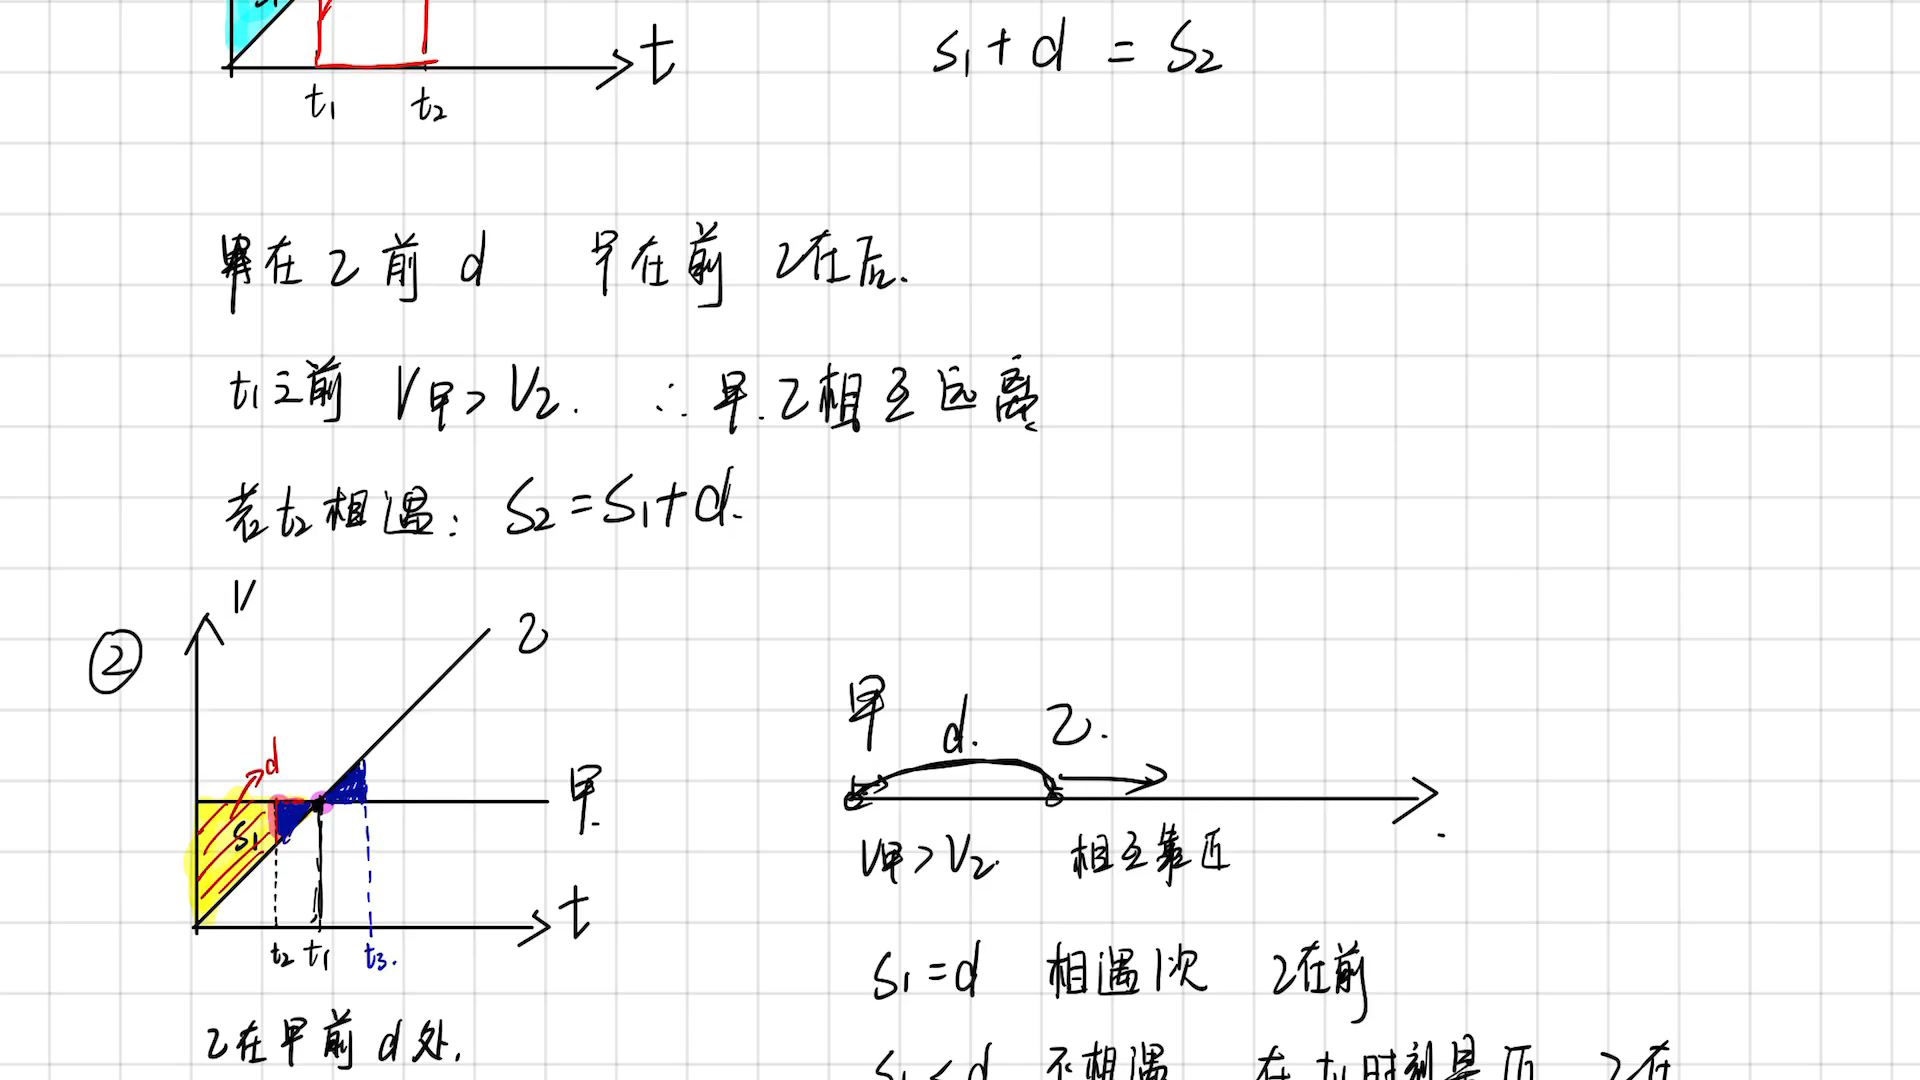 S₁
t
t₁ t₂
S₁+d = S₂
甲在乙前 d 甲在前 乙在后.
t₁之前 V甲>V乙. ∴甲.乙相互远离
若t₂相遇: S₂=S₁+d.
②
V
乙
d
S₁
甲.
t
t₂ t₁ t₃.
乙在甲前 d 处.
甲 d. 乙.
V甲>V乙. 相互靠近
S₁=d 相遇1次 乙在前
S₁<d 不相遇 在t₁时刻最近 乙在